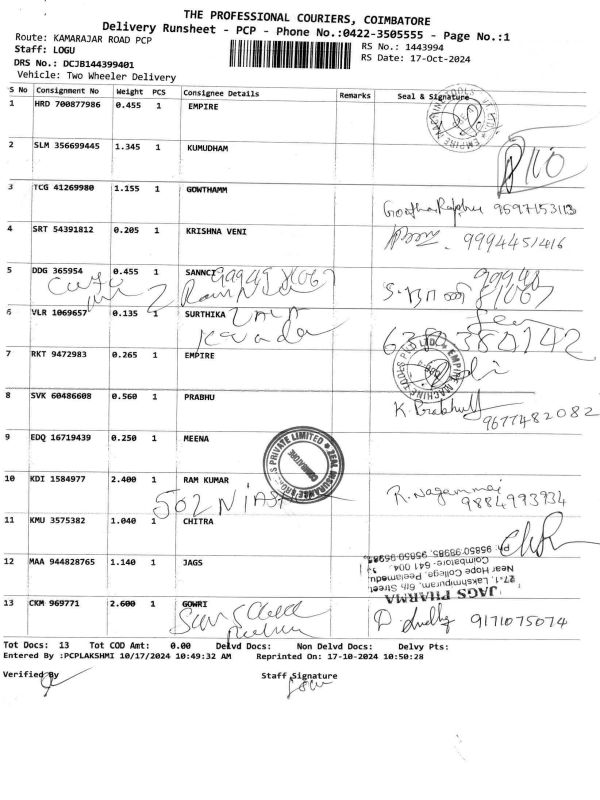 THE PROFESSIONAL COURIERS, COIMBATORE
Delivery Runsheet - PCP - Phone No.:0422-3505555 - Page No.:1
Route: KAMARAJAR ROAD PCP
RS No.: 1443994
Staff: LOGU
RS Date: 17-Oct-2024
DRS No.: DCJB144399401
Vehicle: Two Wheeler Delivery
S No Consignment No Weight PCS Consignee Details Remarks Seal & Signature
1 HRD 700877986 0.455 1 EMPIRE
2 SLM 356699445 1.345 1 KUMUDHAM
3 TCG 41269980 1.155 1 GOWTHAMM
9597153113
4 SRT 54391812 0.205 1 KRISHNA VENI
9994451416
5 DDG 365954 0.455 1 SANNCI
6 VLR 1069657 0.135 1 SURTHIKA
7 RKT 9472983 0.265 1 EMPIRE
8 SVK 60486608 0.560 1 PRABHU
K. Prabhu
9677482082
9 EDQ 16719439 0.250 1 MEENA
10 KDI 1584977 2.400 1 RAM KUMAR
R. Nagammai
9884993934
502
11 KMU 3575382 1.040 1 CHITRA
12 MAA 944828765 1.140 1 JAGS
JAGS PHARMA
27-1, Lakshmipuram, 6th Street,
Near Hope College, Peelamedu,
Coimbatore - 641 004.
13 CKM 969771 2.600 1 GOWRI
9171075074
Tot Docs: 13 Tot COD Amt: 0.00 Delvd Docs: Non Delvd Docs: Delvy Pts:
Entered By :PCPLAKSHMI 10/17/2024 10:49:32 AM Reprinted On: 17-10-2024 10:50:28
Verified By Staff Signature